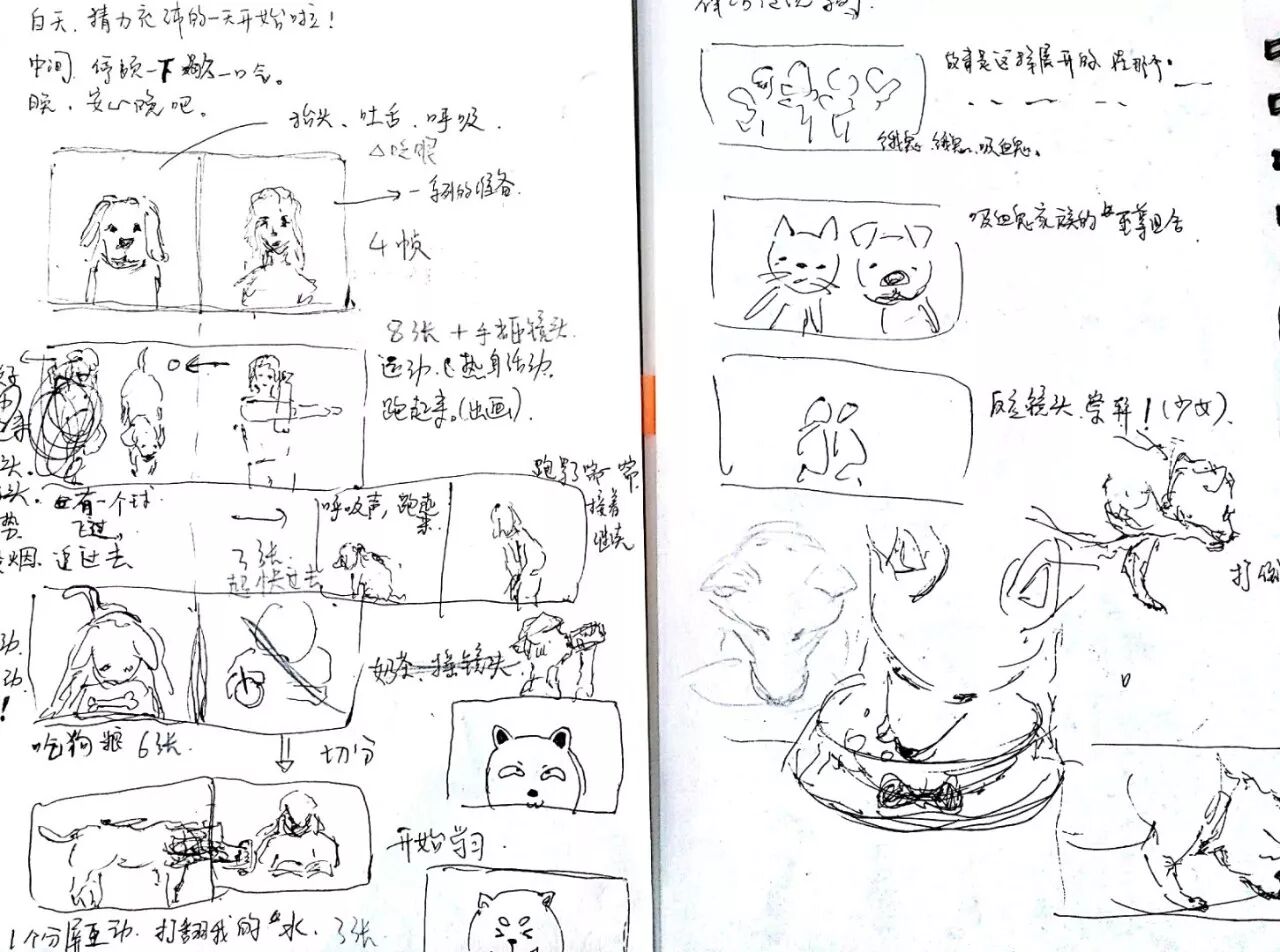 白天,精力充沛的一天开始啦!
中间,停顿一下 歇一口气。
晚,安心晚吧。
抬头、吐舌、呼吸.
△眨眼
一系列的准备.
4帧
8张 + 手部镜头.
运动、热身活动.
跑起来。(出画).
有一个球
飞过。
烟. 追过去
呼吸声,跑起来
跑累了
接着
继续
3张
起 快 过去
奶茶. 摇镜头.
吃狗粮 6张.
切分
开始学习.
1个分屏互动. 打翻我的“水. 3张
故事是这样展开的,在那个。——
饿鬼 饿鬼、吸血鬼。
吸血鬼家族的“至尊组合
反应镜头.掌开!(少女)